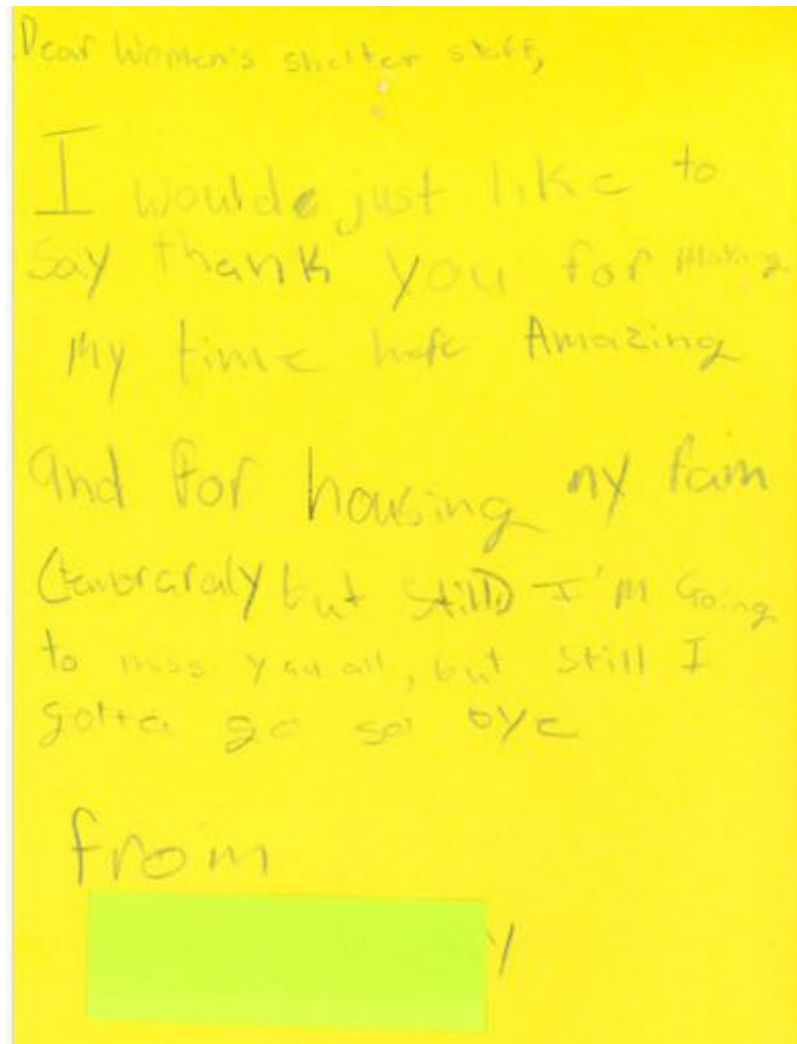 Dear Women's shelter staff,
I would just like to
say thank you for making
My time here Amazing
and for housing my fam
(temoraraly but still) I'm Going
to miss you all, but still I
gotta go so bye
from
y